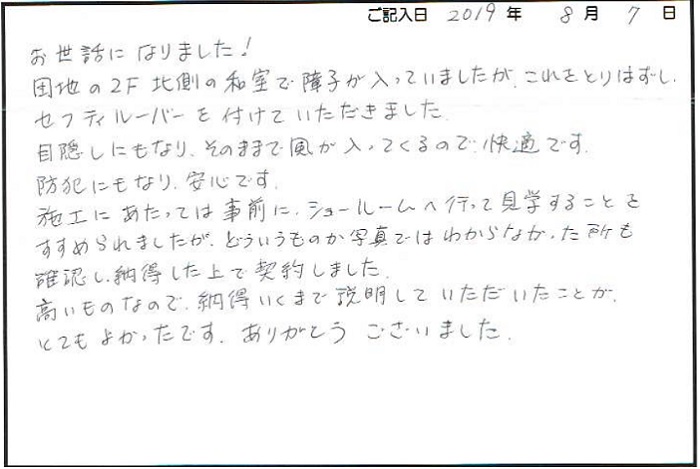 ご記入日 2019 年 8 月 7 日
お世話になりました!
団地の2F 北側の和室で障子が入っていましたが、これをとりはずし、
セフティルーバーを付けていただきました.
目隠しにもなり、そのままで風が入ってくるので、快適です.
防犯にもなり、安心です.
施工にあたっては事前に、ショールームへ行って見学することを
すすめられましたが、どういうものか写真ではわからなかった所も
確認し、納得した上で契約しました.
高いものなので、納得いくまで説明していただいたことが、
とてもよかったです. ありがとう ございました.